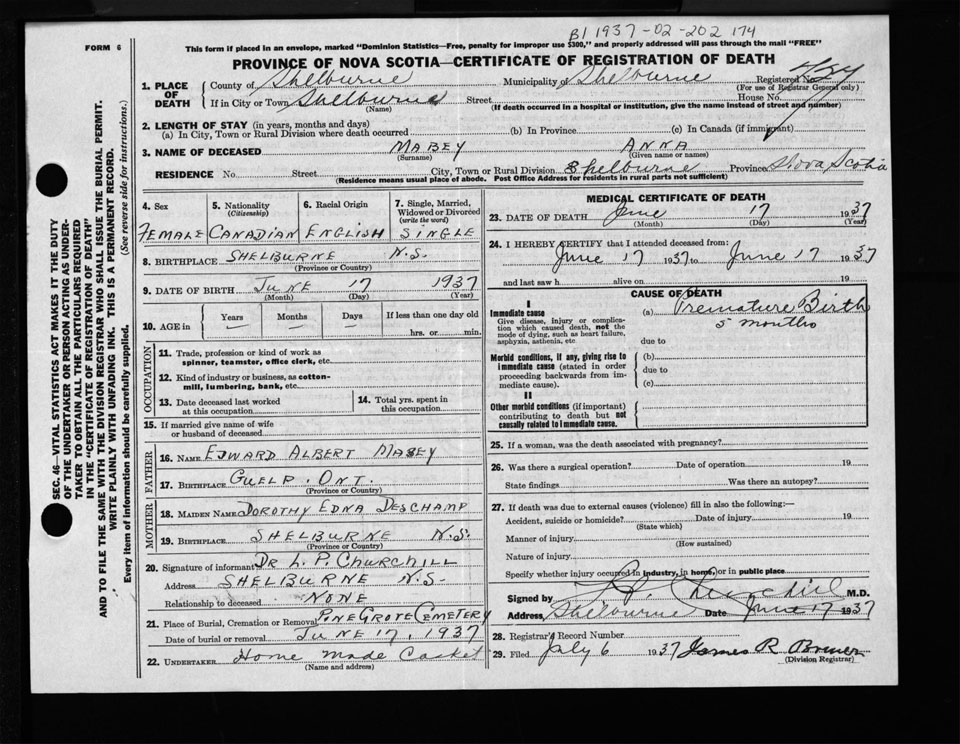 B1 1937-02-202 174
FORM 6
This form if placed in an envelope, marked "Dominion Statistics—Free, penalty for improper use $300," and properly addressed will pass through the mail "FREE"
PROVINCE OF NOVA SCOTIA—CERTIFICATE OF REGISTRATION OF DEATH
1. PLACE OF DEATH
County of Shelburne Municipality of Shelbourne Registered No.
(For use of Registrar General only)
If in City or Town Shelburne Street House No.
(Name) (If death occurred in a hospital or institution, give the name instead of street and number)
2. LENGTH OF STAY (in years, months and days)
(a) In City, Town or Rural Division where death occurred (b) In Province (c) In Canada (if immigrant)
3. NAME OF DECEASED MABEY ANNA
(Surname) (Given name or names)
RESIDENCE No. Street City, Town or Rural Division Shelbourne Province Nova Scotia
(Residence means usual place of abode. Post Office Address for residents in rural parts not sufficient)
4. Sex 5. Nationality (Citizenship) 6. Racial Origin 7. Single, Married, Widowed or Divorced (write the word)
FEMALE CANADIAN ENGLISH SINGLE
8. BIRTHPLACE SHELBURNE N.S.
(Province or Country)
9. DATE OF BIRTH JUNE 17 1937
(Month) (Day) (Year)
10. AGE in Years Months Days If less than one day old
— — — hrs. or min.
OCCUPATION
11. Trade, profession or kind of work as
spinner, teamster, office clerk, etc.
12. Kind of industry or business, as cotton-
mill, lumbering, bank, etc.
13. Date deceased last worked
at this occupation
14. Total yrs. spent in
this occupation
15. If married give name of wife
or husband of deceased
FATHER
16. Name EDWARD ALBERT MABEY
17. Birthplace GUELP. ONT.
(Province or Country)
MOTHER
18. Maiden Name DOROTHY EDNA DESCHAMP
19. Birthplace SHELBURNE N.S.
(Province or Country)
20. Signature of informant DR L. P. CHURCHILL
Address SHELBURNE N.S.
Relationship to deceased NONE
21. Place of Burial, Cremation or Removal PINE GROVE CEMETERY
Date of burial or removal JUNE 17, 1937
22. UNDERTAKER Home Made Casket
(Name and address)
MEDICAL CERTIFICATE OF DEATH
23. DATE OF DEATH June 17 1937
(Month) (Day) (Year)
24. I HEREBY CERTIFY that I attended deceased from:
June 17 1937 to June 17 1937
and last saw h alive on 19
CAUSE OF DEATH
I
Immediate cause
Give disease, injury or compli-
cation which caused death, not the
mode of dying, such as heart failure,
asphyxia, asthenia, etc
(a) Premature Birth
5 months
due to
Morbid conditions, if any, giving rise to
immediate cause (stated in order
proceeding backwards from im-
mediate cause).
(b)
due to
(c)
II
Other morbid conditions (if important)
contributing to death but not
causally related to immediate cause.
25. If a woman, was the death associated with pregnancy?
26. Was there a surgical operation? Date of operation 19
State findings Was there an autopsy?
27. If death was due to external causes (violence) fill in also the following:—
Accident, suicide or homicide? Date of injury 19
(State which)
Manner of injury
(How sustained)
Nature of injury
Specify whether injury occurred in industry, in home, or in public place
Signed by L.P. Churchill M.D.
Address Shelbourne Date June 17 1937
28. Registrar's Record Number
29. Filed July 6 1937 James R Bower
(Division Registrar)
SEC. 46—VITAL STATISTICS ACT MAKES IT THE DUTY
OF THE UNDERTAKER OR PERSON ACTING AS UNDER-
TAKER TO OBTAIN ALL THE PARTICULARS REQUIRED
IN THE "CERTIFICATE OF REGISTRATION OF DEATH"
AND TO FILE THE SAME WITH THE DIVISION REGISTRAR WHO SHALL ISSUE THE BURIAL PERMIT.
WRITE PLAINLY WITH UNFADING INK. THIS IS A PERMANENT RECORD.
Every item of information should be carefully supplied. (See reverse side for instructions.)